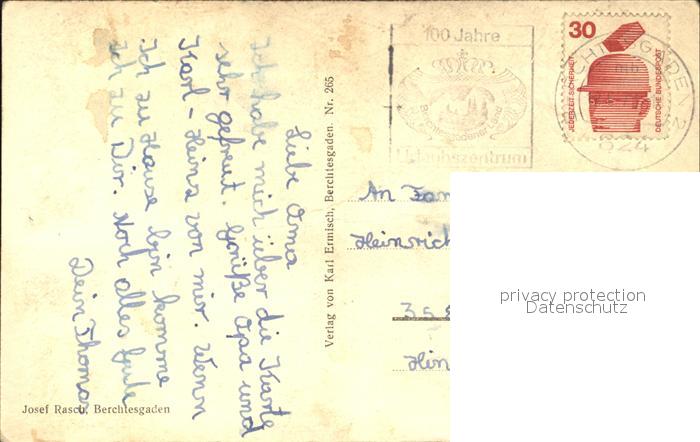 Liebe Oma
Ich habe mich über die Karte
sehr gefreut. Grüße Opa und
Karl-Heinz von mir. Wenn
Ich zu Hause bin komme
ich zu Dir. Noch alles Gute
Dein Thomas
Josef Rasch, Berchtesgaden
Verlag von Karl Ermisch, Berchtesgaden. Nr. 265
100 Jahre
Berchtesgadener Land
Urlaubszentrum
30
JEDERZEIT SICHERHEIT
DEUTSCHE BUNDESPOST
824
An Fam
Heinrich
358
Hin
privacy protection
Datenschutz